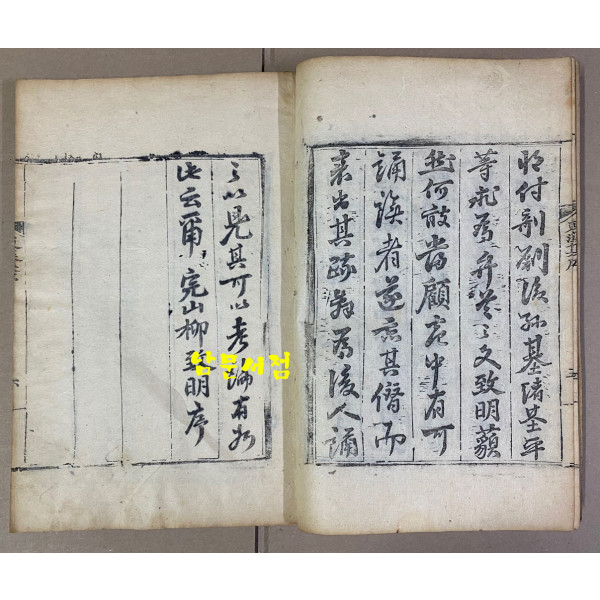 將付剞劂後孫基緖基平
等求爲弁卷之文致明藐
然何敢當顧庭中有可
誦誤者遂忘其僭而
表出其疏辭爲後人誦
之以見其可以考論有如
此云爾 完山柳致明序
남문서점